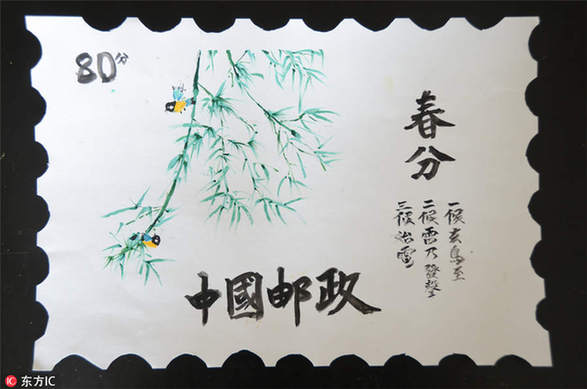 80分
春分
一候玄鳥至
二候雷乃發聲
三候始電
中國邮政
东方IC